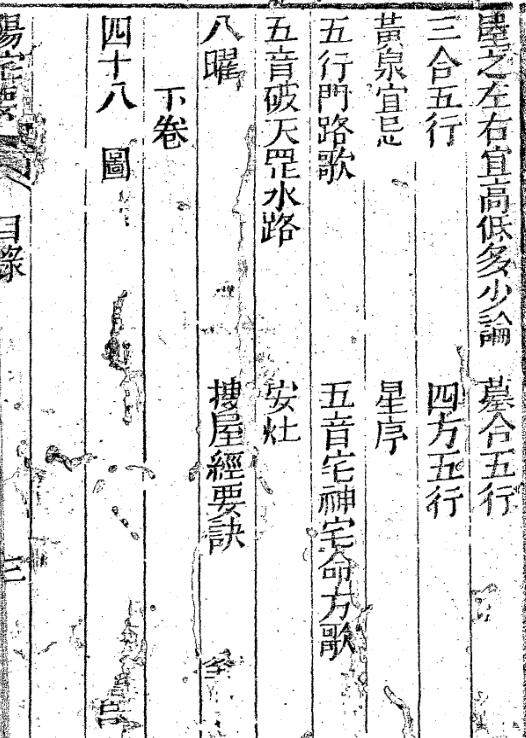 屋之左右宜高低多少論 墓合五行
三合五行 四方五行
黃泉宜忌 星序
五行門路歌 五音宅神宅命方歌
五音破天罡水路 安灶
八曜 摟屋經要訣
下卷
四十八圖
陽宅 目錄 三